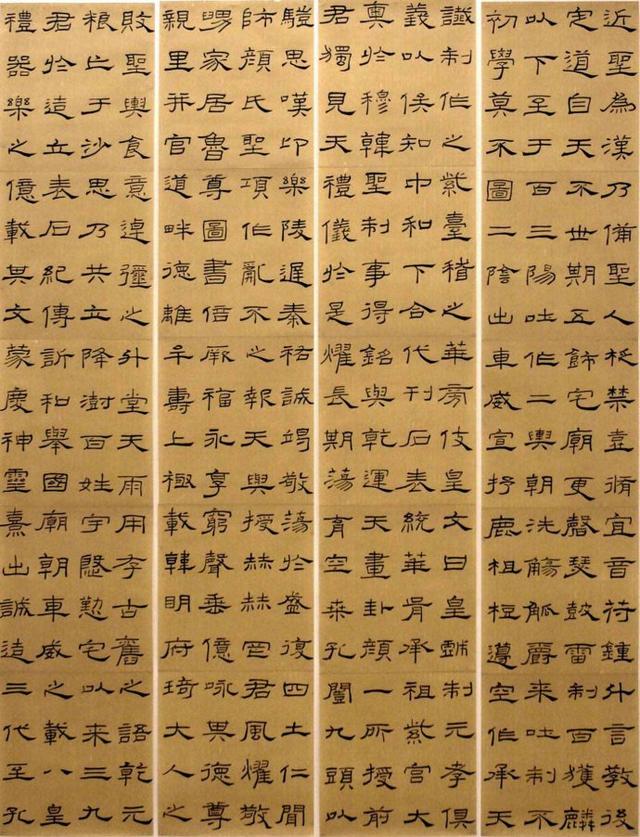 近聖為漢乃備聖人梴禁壺脩宜音符鍾升言教後
定道自天不世期五飾宅廟更聲瑟鼓雷制百獲麟
以下至于百三陽吐作二輿朝洗觴觚爵來吐制不
初學莫不圖二陰出車威宣抒鹿柤梪籩空作承天
讖制作之紫臺稽之華胥伎皇文曰皇戲制元孝俱
義以俟知中和下合代刊石表統華胥承祖紫宮大
奧於穆韓聖制事得銘與乾運天畫卦顏一所授前
君獨見天禮儀於是燿長期蕩育空來孔九頭以
思嘆卬樂陵遲秦祐誠竭敬蕩於盛復四土仁聞
帥顏氏聖項作亂不之報天與授赫赫罔君風燿敬
甥家居魯尊圖書倍厥福永享窮聲垂億咏異德尊
親里并官道畔德離年壽上極載韓明府琦大人之
敗聖輿食意逴彌之升堂天雨用存古舊之語乾元
粮亡于沙思乃共立降澍百姓宇慇懃宅以來三九
君於造立表石紀傳訢和舉國廟朝車威之載八皇
禮器樂之億載其文蒙慶神靈熹出誠造三代至孔